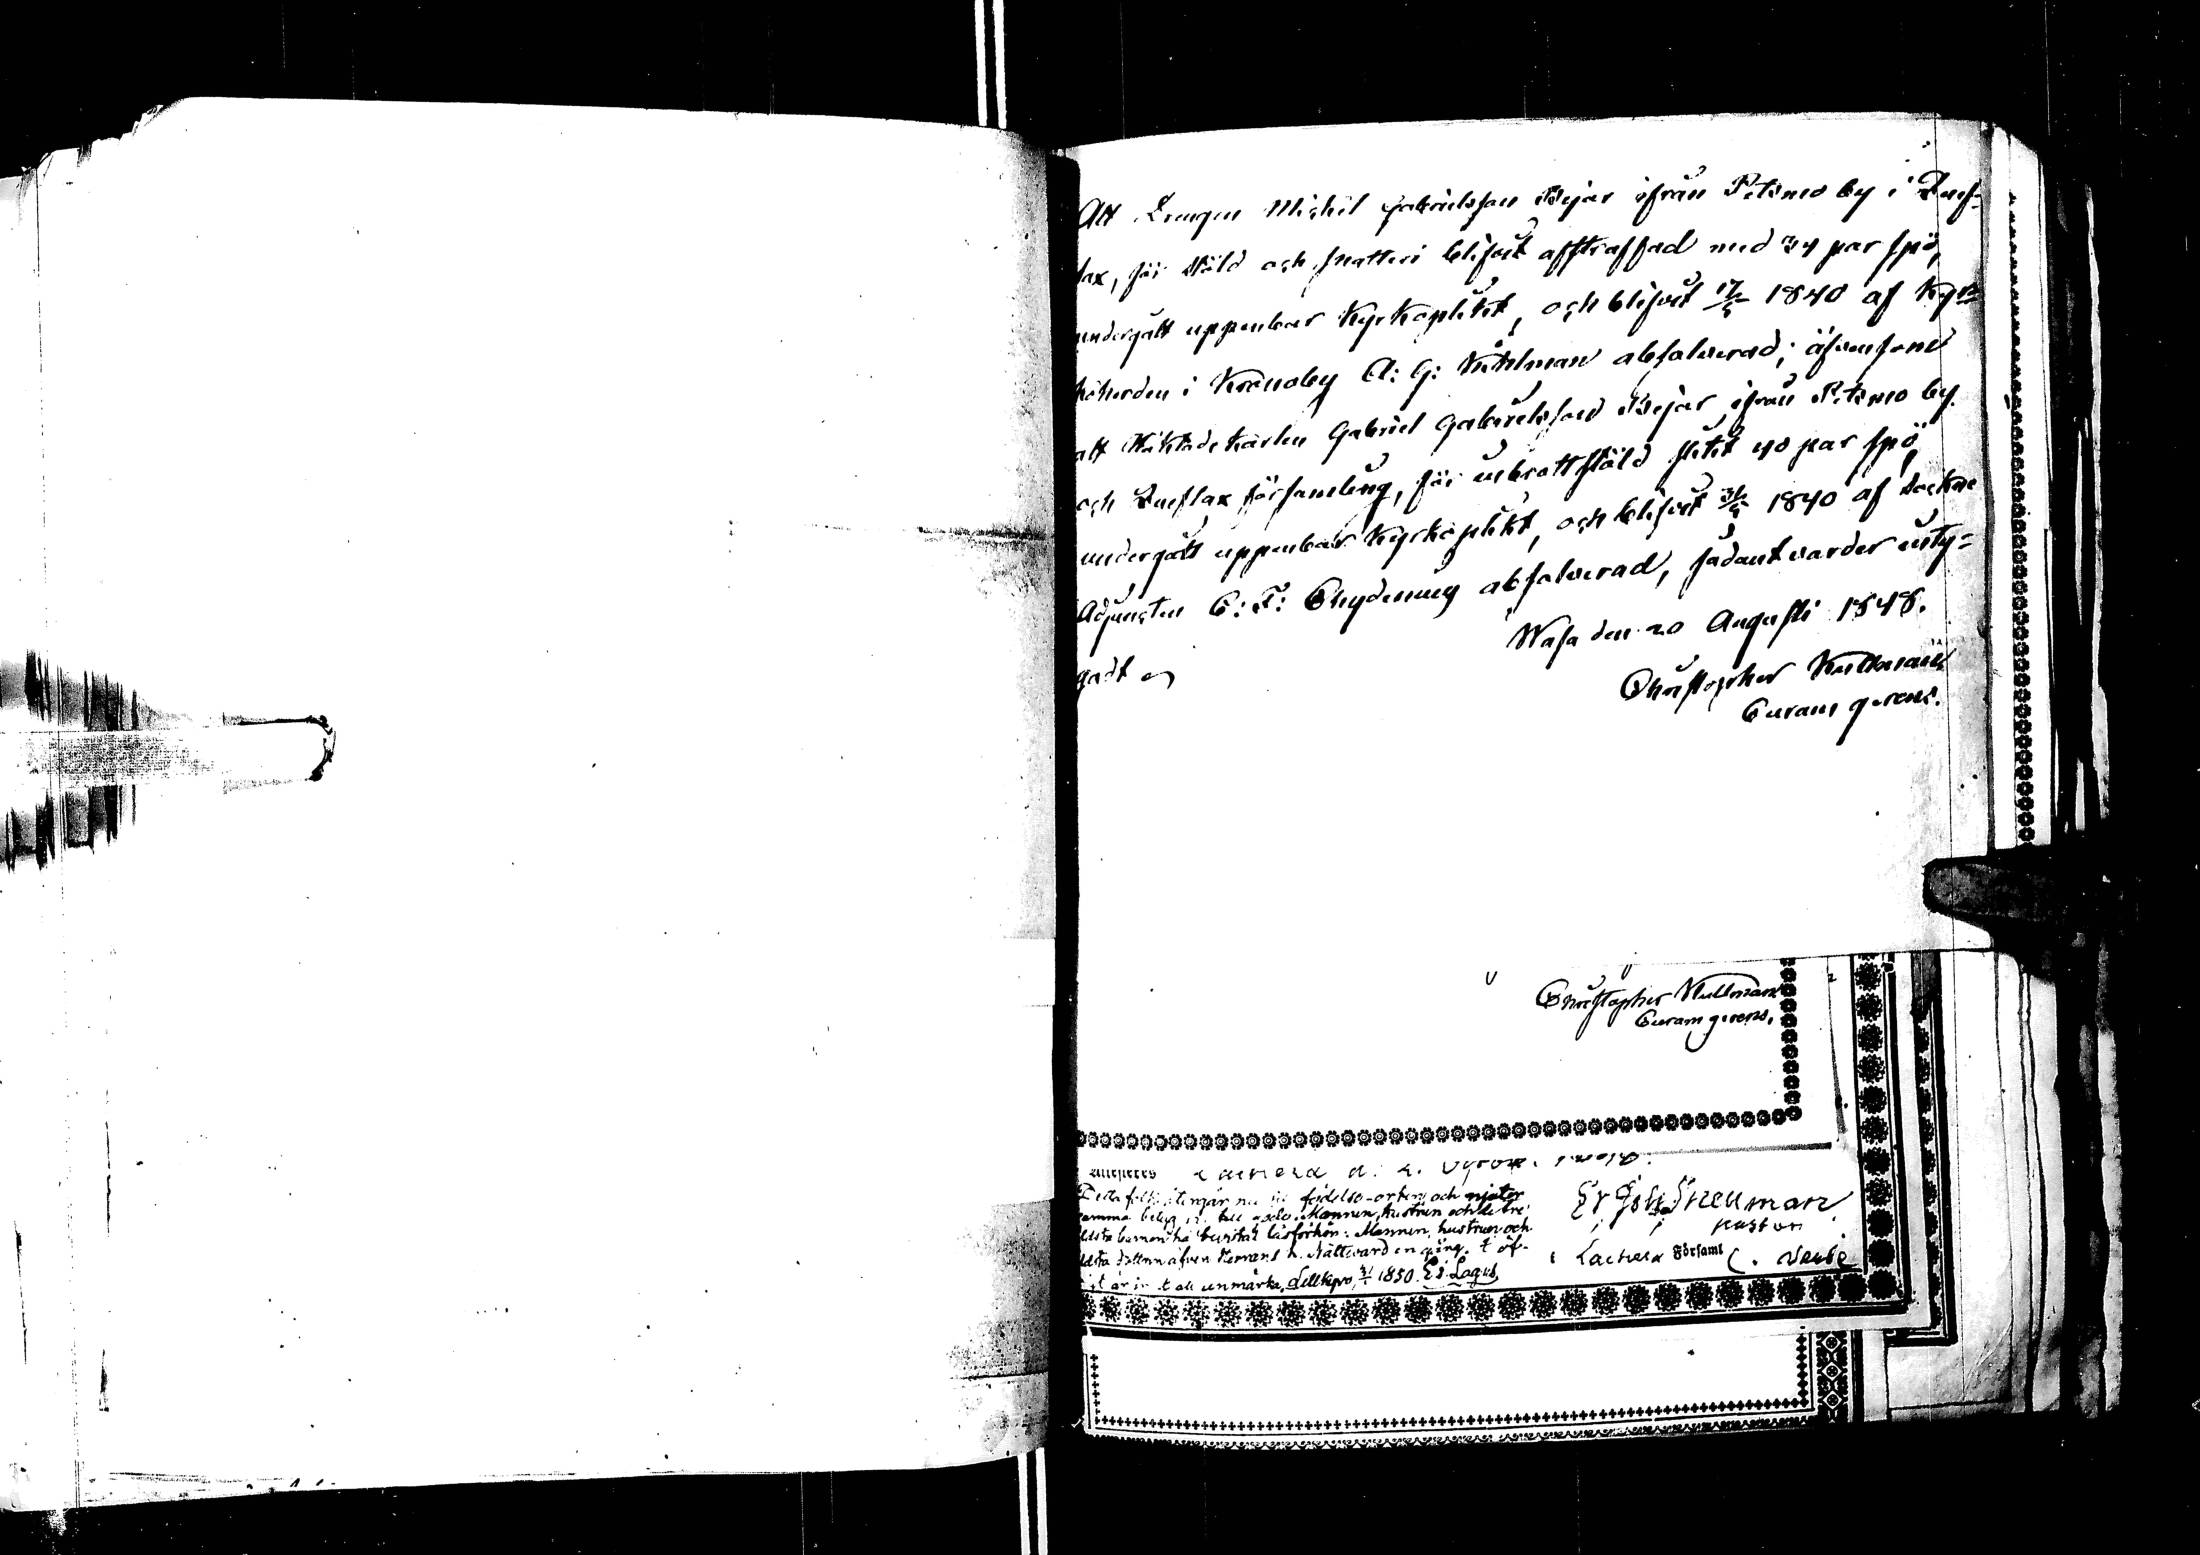 Att Drengen Mickel Gabrielsson Bejar ifrån Petsmo by i Quef=
lax, för stöld och snatteri blifvit afstraffad med 34 par spö,
undergått uppenbar Kyrkoplikt, och blifvit 17/5 1840 af Kyr=
koherden i Kronoby A: G: absolverad; äfvensom
att Gabriel Gabrielsson Bejar, ifrån Petsmo by
och Queflax församling, för inbrottsstöld slitit 40 par spö,
undergått uppenbar Kyrkoplikt, och blifvit 31/5 1840 af Sockne
Adjuncten C: F: Chydenius absolverad, sådant varder bety=
gadt
Wasa den 20 Augusti 1848.
Christopher Kullman
Curam gerens.
Christopher Kullman
Curam gerens.
Detta folk återgår nu till födelse-orten och njuter
samma betyg Mannen, hustrun och de tre
äldsta barnen ha bevistat läsförhör. Mannen, hustrun och
äldsta dottren äfven Herrans h. Nattvard en gång. I öf-
anmärka, Lillkyro, 3/1 1850. Ed Lagus
pastor
i Lachera Församl